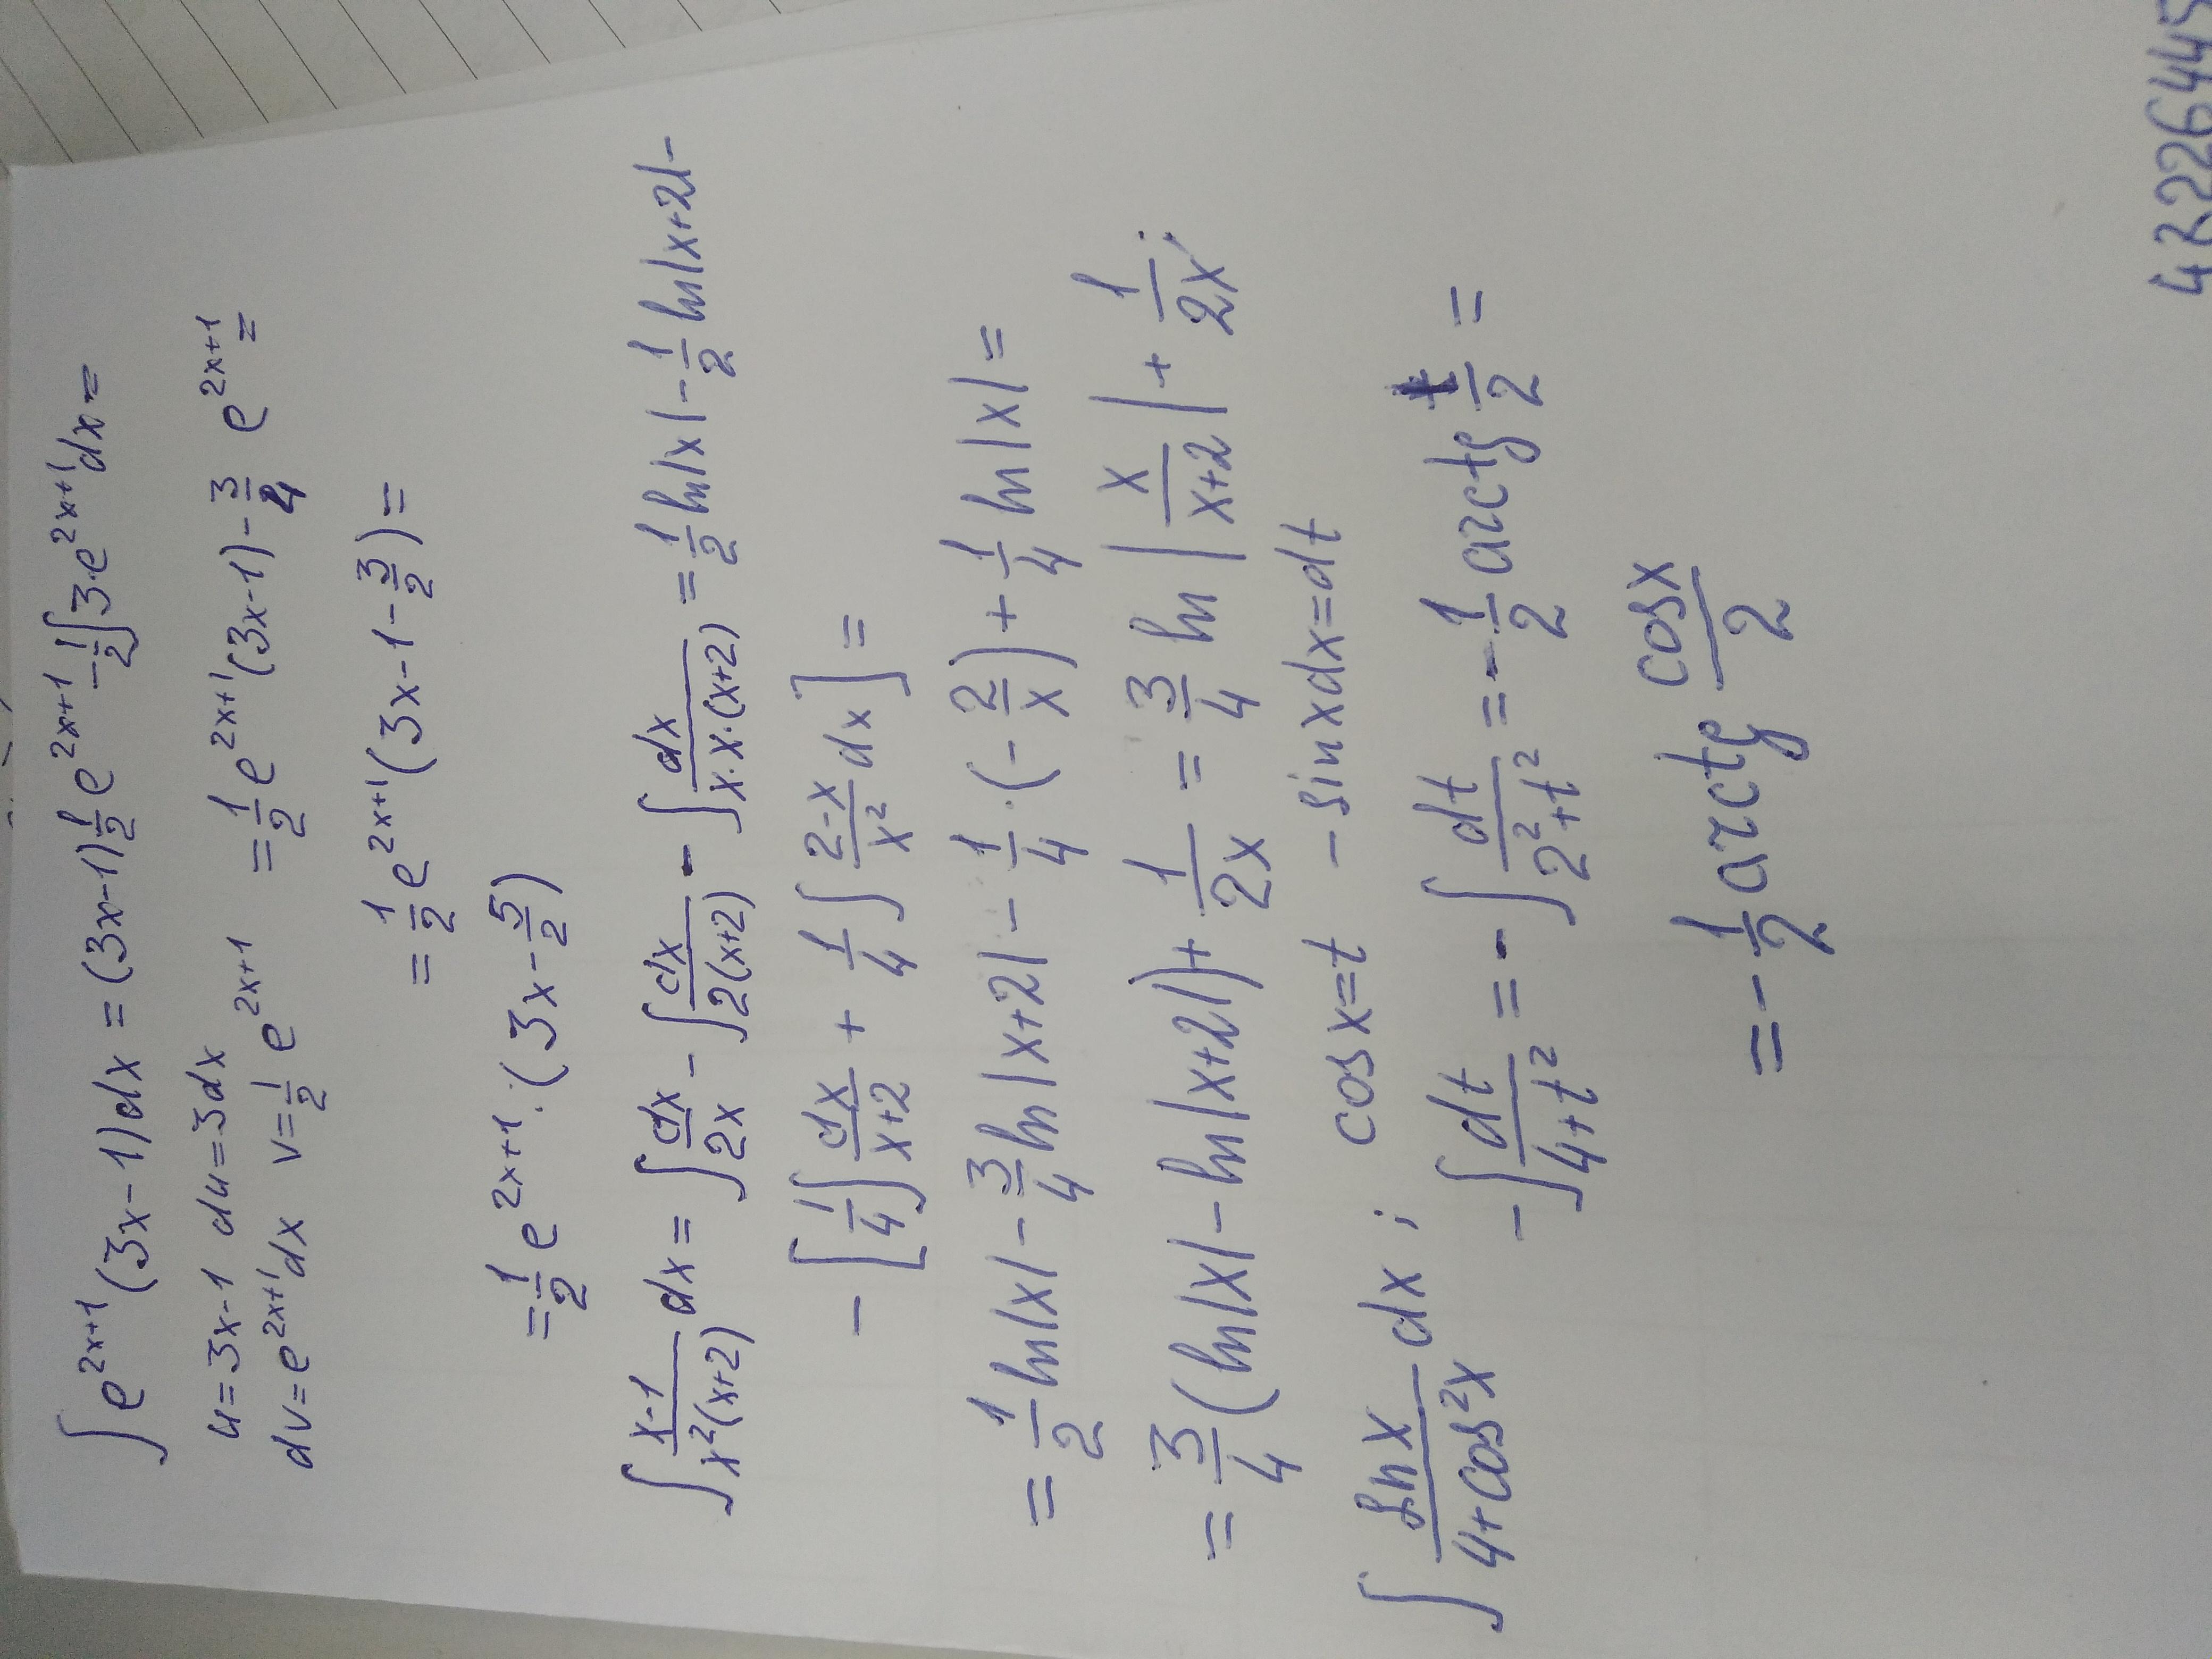 ∫e^{2x+1}(3x-1)dx = (3x-1)\frac{1}{2}e^{2x+1} - \frac{1}{2}∫3·e^{2x+1}dx =
u=3x-1 du=3dx
dv=e^{2x+1}dx v=\frac{1}{2}e^{2x+1} = \frac{1}{2}e^{2x+1}(3x-1) - \frac{3}{4}e^{2x+1} =
= \frac{1}{2}e^{2x+1}(3x-1-\frac{3}{2}) =
= \frac{1}{2}e^{2x+1}·(3x-\frac{5}{2})
∫\frac{x-1}{x^2(x+2)}dx = ∫\frac{dx}{2x} - ∫\frac{dx}{2(x+2)} - ∫\frac{dx}{x·x·(x+2)} = \frac{1}{2}ln|x| - \frac{1}{2}ln|x+2| -
- [\frac{1}{4}∫\frac{dx}{x+2} + \frac{1}{4}∫\frac{2-x}{x^2}dx] =
= \frac{1}{2}ln|x| - \frac{3}{4}ln|x+2| - \frac{1}{4}·(-\frac{2}{x}) + \frac{1}{4}ln|x| =
= \frac{3}{4}(ln|x| - ln|x+2|) + \frac{1}{2x} = \frac{3}{4}ln|\frac{x}{x+2}| + \frac{1}{2x};
∫\frac{sin x}{4+cos^2x}dx; cosx=t -sinxdx=dt
-∫\frac{dt}{4+t^2} = -∫\frac{dt}{2^2+t^2} = -\frac{1}{2}arctg\frac{t}{2} =
= -\frac{1}{2}arctg\frac{cosx}{2}